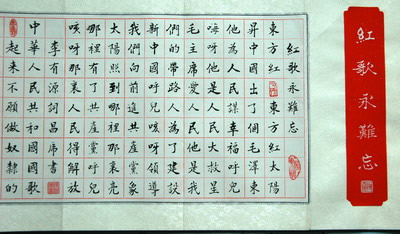 紅歌永難忘
紅歌永難忘
東方紅東方紅太陽
昇中國出了個毛澤東
他為人民謀幸福呼兒
嗨呀他是人民大救星
毛主席愛人民他是我
們的帶路人為了建設
新中國呼兒咳呀領導
我們向前進共產黨象
太陽照到哪裏哪裏亮
哪裡有了共產黨呼兒
咳呀那裏人民得解放
李有源詞
中華人民共和國國歌
起來不願做奴隸的